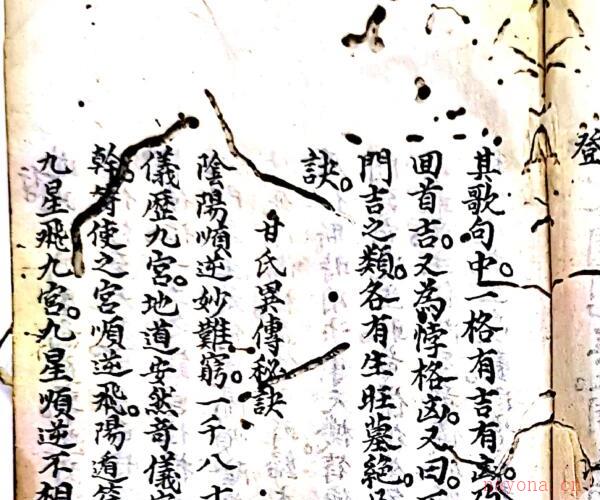 登
其歌句中。一格有吉有凶
囬首吉。又為悖格凶。又曰。
門吉之類。各有生旺墓絕。
訣。
甘氏異傳秘訣
陰陽順逆妙難窮。一千八十
儀歷九宮。地道安然奇儀
幹等使之宮順逆飛。陽遁
九星飛九宮。九星順逆不相
nayona.cn